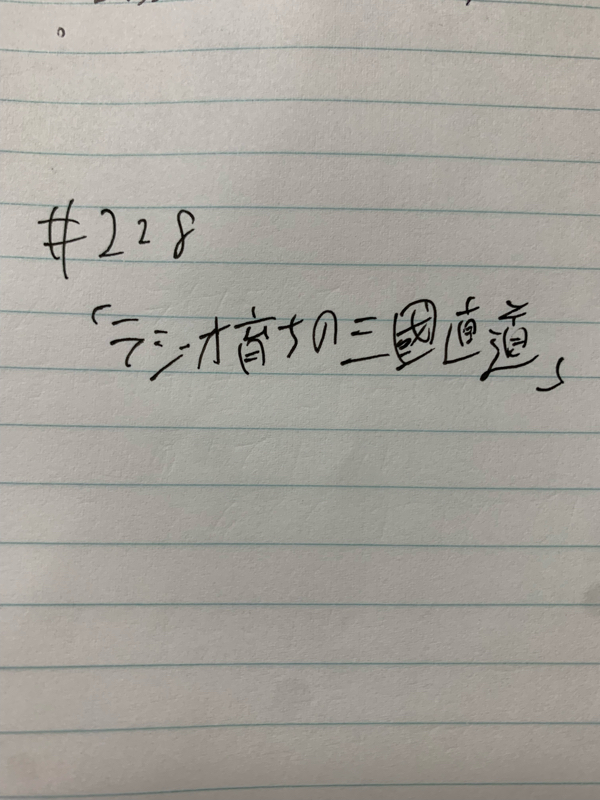 #228
「ラジオ育ちの三國直道」